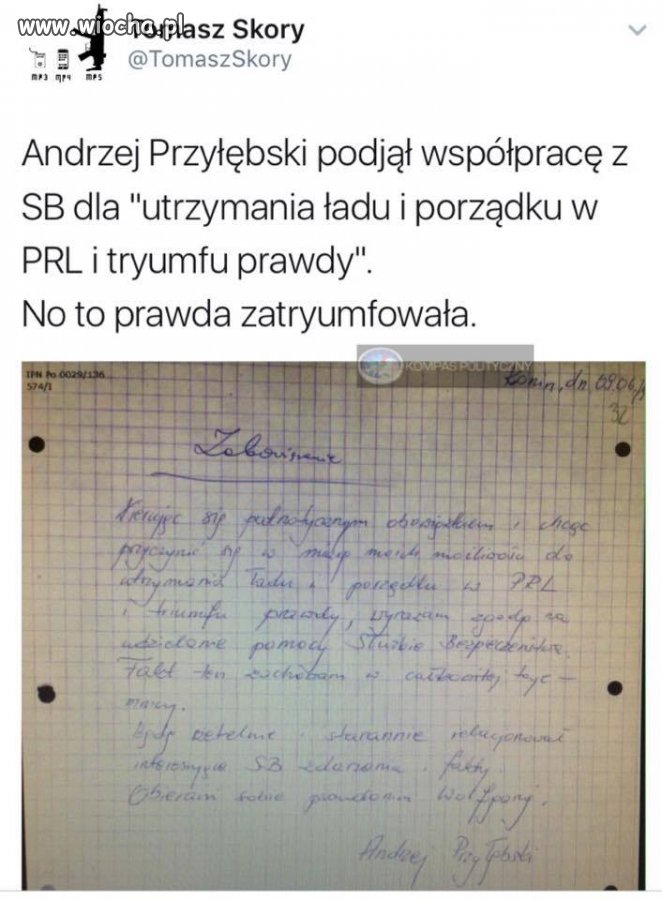 www.wiocha.pl
Tomasz Skory
@TomaszSkory
MP3 MP4 MP5
Andrzej Przyłębski podjął współpracę z
SB dla "utrzymania ładu i porządku w
PRL i tryumfu prawdy".
No to prawda zatryumfowała.
KOMPAS POLITYCZNY
IPN Po 0029/136
574/1
Konin, dn. 09.06.
32
Zobowiązanie
Kierując się patriotycznym obowiązkiem i chcąc
przyczynić się w miarę moich możliwości do
utrzymania ładu i porządku w PRL
i triumfu prawdy, wyrażam zgodę na
udzielanie pomocy Służbie Bezpieczeństwa.
Fakt ten zachowam w całkowitej tajem-
nicy.
Będę rzetelnie i starannie relacjonował
interesujące SB zdarzenia i fakty.
Obieram sobie pseudonim Wolfgang.
Andrzej Przyłębski